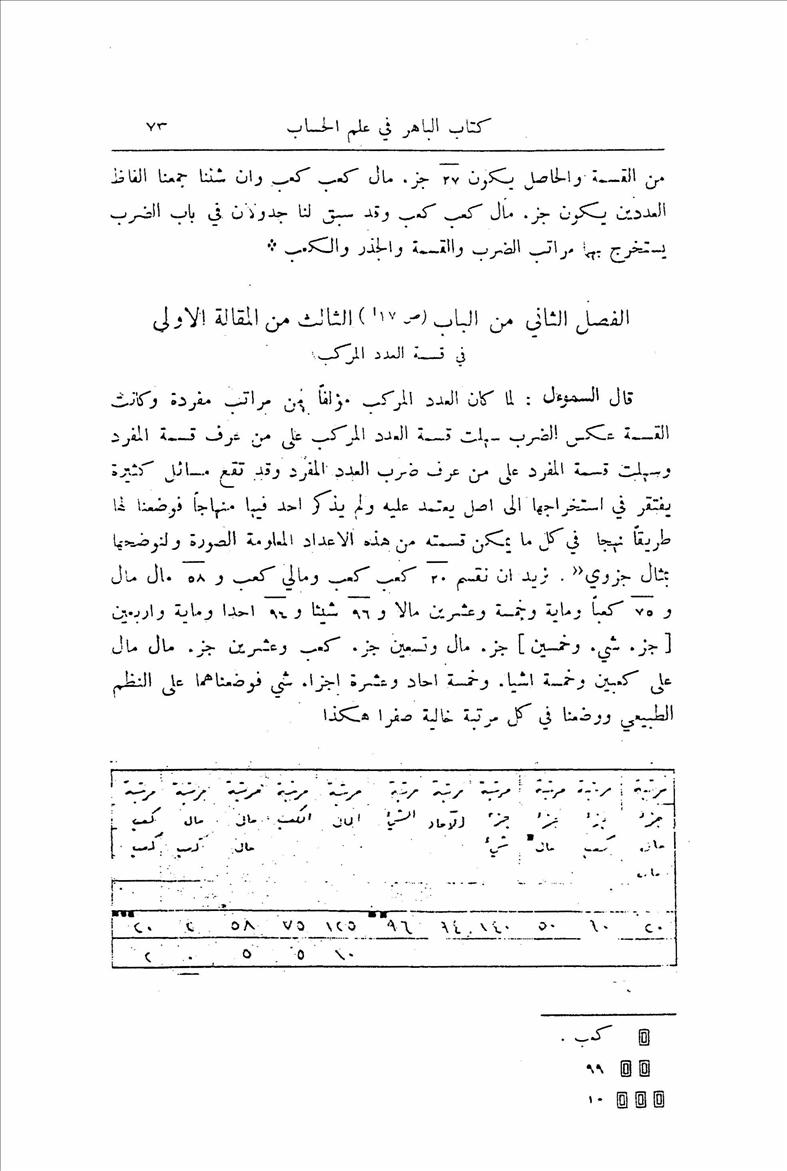 كتاب الباهر في علم الحساب ٧٣
من القسمة والحاصل يكون ٢٧ جز. مال كعب كعب وان شئنا جمعنا الفاظ
العددين يكون جز. مال كعب كعب وقد سبق لنا جدولان في باب الضرب
يستخرج بهما مراتب الضرب والقسمة والجذر والكعب
الفصل الثاني من الباب (ص ١٧ا) الثالث من المقالة الاولى
في قسمة العدد المركب
قال السموءل : لما كان العدد المركب مؤلفاً من مراتب مفردة وكانت
القسمة عكس الضرب سهلت قسمة العدد المركب على من عرف قسمة المفرد
وسهلت قسمة المفرد على من عرف ضرب العدد المفرد وقد تقع مسائل كثيرة
يفتقر في استخراجها الى اصل يعتمد عليه ولم يذكر احد فيها منهاجاً فوضعنا لها
طريقاً نهجا في كل ما يمكن قسمته من هذه الاعداد المعلومة الصورة ولنوضحها
بمثال جزوي« . نريد ان نقسم ٢٠ كعب كعب ومالي كعب و ٥٨ مال مال
و ٧٥ كعباً وماية وخمسة وعشرين مالا و ٩٦ شيئا و ٩٤ احدا وماية واربعين
[ جز. شي. وخمسين ] جز. مال وتسعين جز. كعب وعشرين جز. مال مال
على كعبين وخمسة اشيا. وخمسة احاد وعشرة اجزا. شي فوضعناهما على النظم
الطبيعي ووضعنا في كل مرتبة خالية صفرا هكذا
مرتبة مرتبة مرتبة مرتبة مرتبة مرتبة مرتبة مرتبة مرتبة مرتبة مرتبة
جزء جزء جزء جزء الآحاد الشيء المال الكعب مال مال كعب
مال كعب مال شيء مال كعب كعب
مال
٢٠ ٦٠ ٥٠ ١٤٠ ٩٤ ٩٦ ١٢٥ ٧٥ ٥٨ ٢ ٢٠
١٠ ٥ ٥ ٠ ٢
كعب .
٩٩
١٠